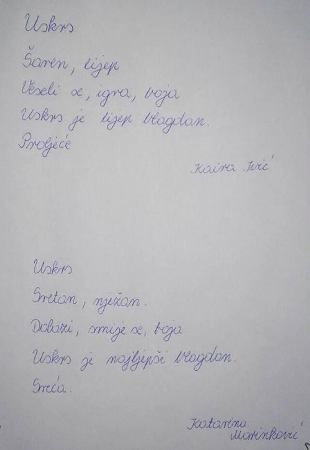 Uskrs
Šaren, lijep
Veseli se, igra, boja
Uskrs je lijep blagdan.
Proljeće
Kaira Ivić
Uskrs
Sretan, nježan.
Dolazi, smije se, boja
Uskrs je najljepši blagdan.
Sreća.
Katarina
Marinković